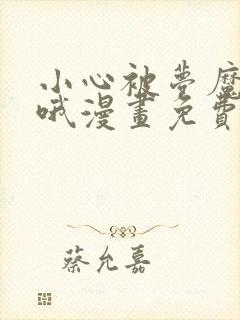 小心被夢魔
哦漫畫免費
蔡允嘉